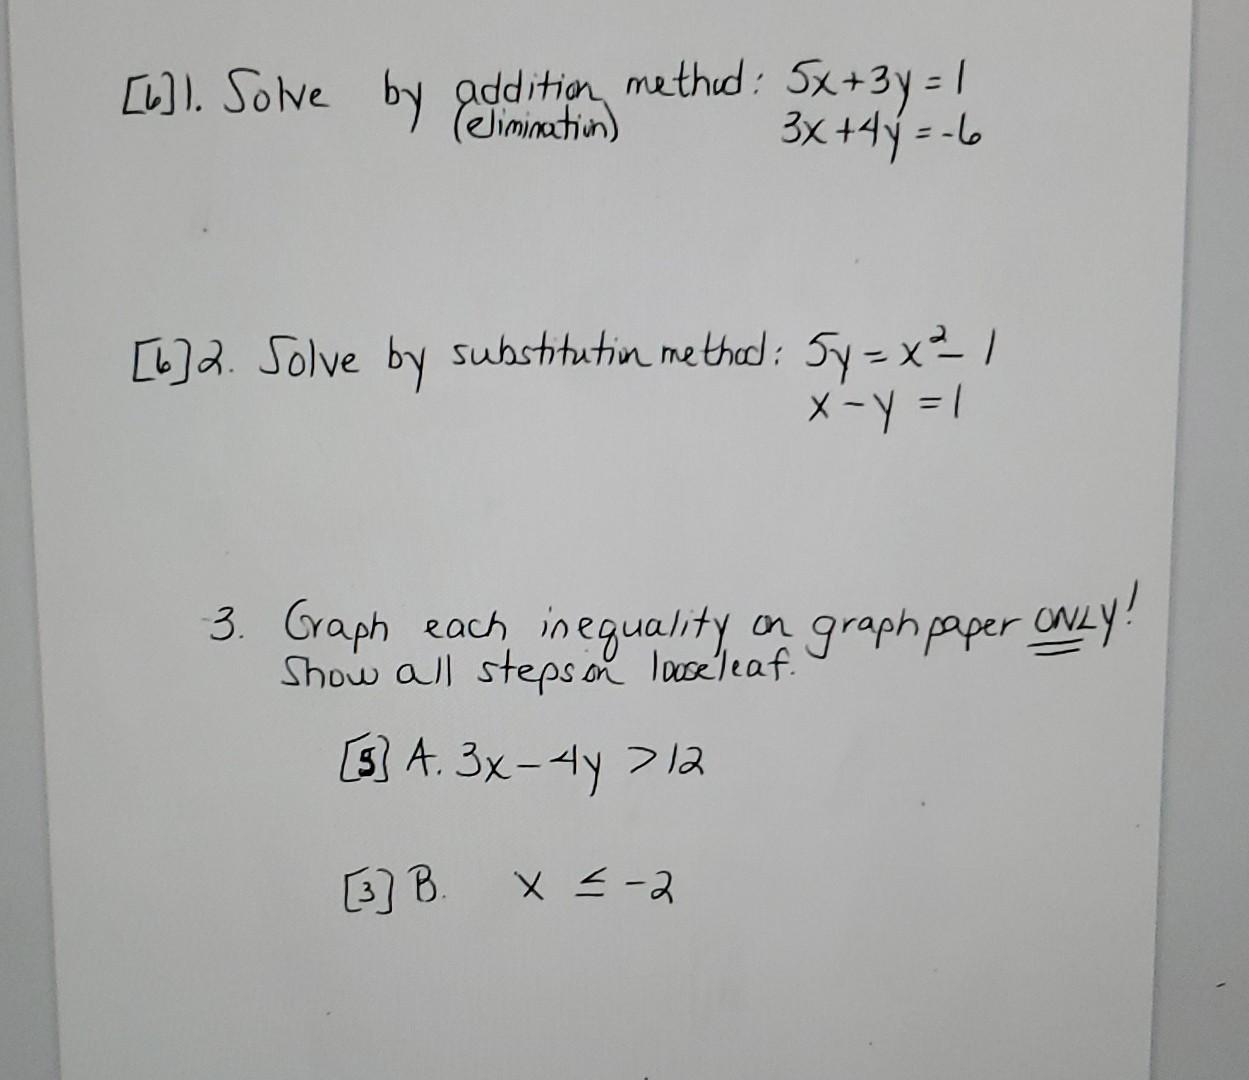 [6]1. Solve by addition method: 5x+3y=1
(elimination) 3x+4y=-6
[6]2. Solve by substitution method: 5y=x²-1
x-y=1
3. Graph each inequality on graph paper ONLY!
Show all steps on looseleaf.
[5] A. 3x-4y >12
[3] B. x ≤ -2